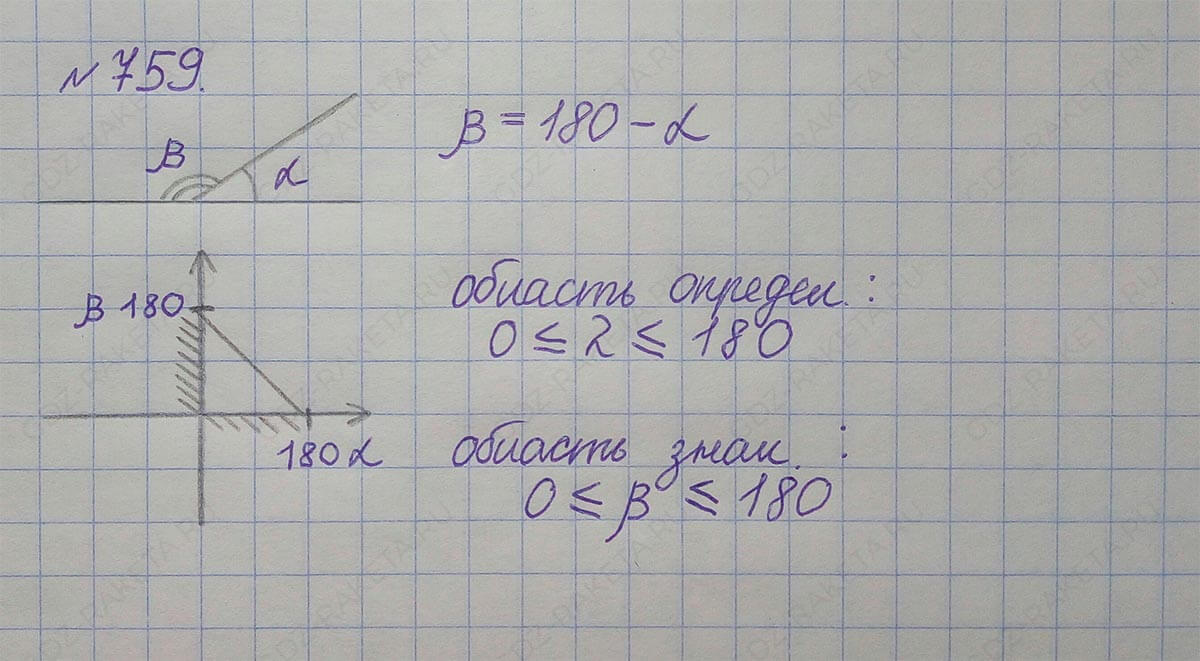 №759.
β = 180 - α
β
α
β 180
180 α
область определ. :
0 ≤ 2 ≤ 180
область знач. :
0 ≤ β ≤ 180
GDZ-RAKETA.RU